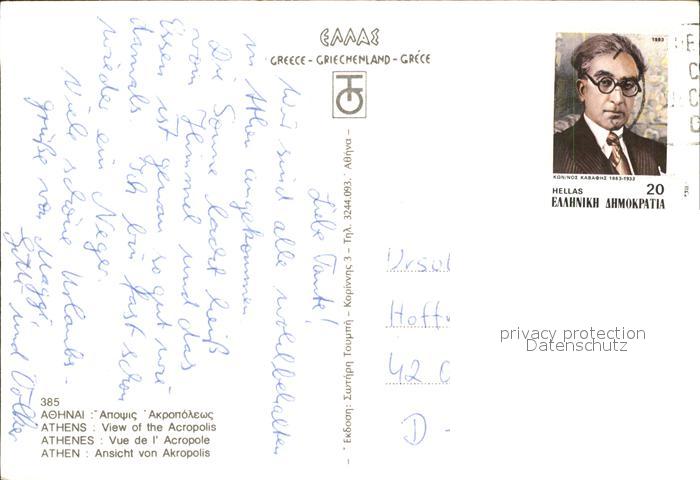 ΕΛΛΑΣ
GREECE - GRIECHENLAND - GRÈCE
1983
ΚΩΝ/ΝΟΣ ΚΑΒΑΦΗΣ 1863-1933
HELLAS 20
ΕΛΛΗΝΙΚΗ ΔΗΜΟΚΡΑΤΙΑ
Liebe Tante!
Wir sind alle wohlbehalten
in Athen angekommen
Die Sonne lacht heiß
vom Himmel und das
Essen ist genau so gut wie
damals. Ich bin fast schon
wieder ein Neger.
Viele schöne Urlaubs-
grüße von Maggi,
und Volker
Έκδοση: Σωτήρη Τουμπή - Κορίννης 3 - Τηλ. 3244.093. Αθήνα -
Ursul
Hoff
42 0
D -
privacy protection
Datenschutz
385
ΑΘΗΝΑΙ : Ἄποψις Ἀκροπόλεως
ATHENS : View of the Acropolis
ATHENES : Vue de l' Acropole
ATHEN : Ansicht von Akropolis